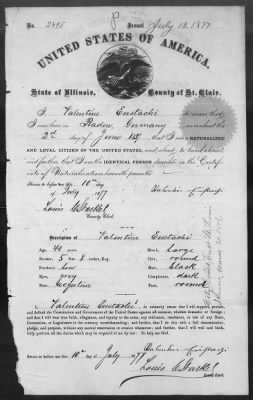 No. 2495 Issued July 13, 1877
UNITED STATES OF AMERICA.
State of Illinois, County of St. Clair.
I, Valentine Eustachi do swear that
I was born in Baden, Germany on or about the
2nd day of June that I am a NATURALIZED
AND LOYAL CITIZEN OF THE UNITED STATES, and about to travel abroad,
and further, that I am the IDENTICAL PERSON described in the Certificate
of Naturalization herewith presented
Sworn to before me this 10th
day of July 1877
County Clerk
Description of Valentine Eustachi
Age, 40 years Mouth, Large
Stature, 5 feet 8 inches, Eng. Chin, round
Forehead, low Hair, black
Eyes, grey Complexion, dark
Nose, Face, round
I, Valentine Eustachi do solemnly swear that I will support, protect and
defend the Constitution and Government of the United States against all enemies, whether domestic or foreign;
and that I will bear true faith, allegiance, and loyalty to the same, any ordinance, resolution, or law of any State,
Convention, or Legislature to the contrary notwithstanding; and further, that I do this with a full determination,
pledge, and purpose, without any mental reservation or evasion whatsoever; and further, that I will well and faithfully
perform all the duties which may be required of me by law. So help me God.
Sworn to before me, this 10th day of July 1877